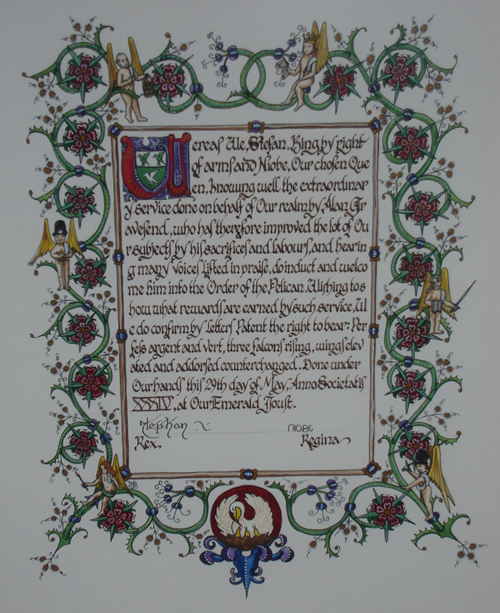 Wereas We, Stefan, King by right
of arms and Niobe, Our chosen Que
en, knowing well the extraordinar
y service done on behalf of Our realm by Alan Gr
avesend, who has therefore improved the lot of Ou
r subjects by his sacrifices and labours, and hearin
g many Voices lifted in praise, do induct and welco
me him into the Order of the Pelican. Wishing to s
how what rewards are earned by such service, W
e do confirm by Letters Patent the right to bear: Per
fess argent and vert, three falcons rising, wings elev
ated and addorsed counterchanged. Done under
Our hands this 29th day of May, Anno Societatis
XXXIV, at Our Emerald Joust.
Stephan X NIOBE
Rex. Regina